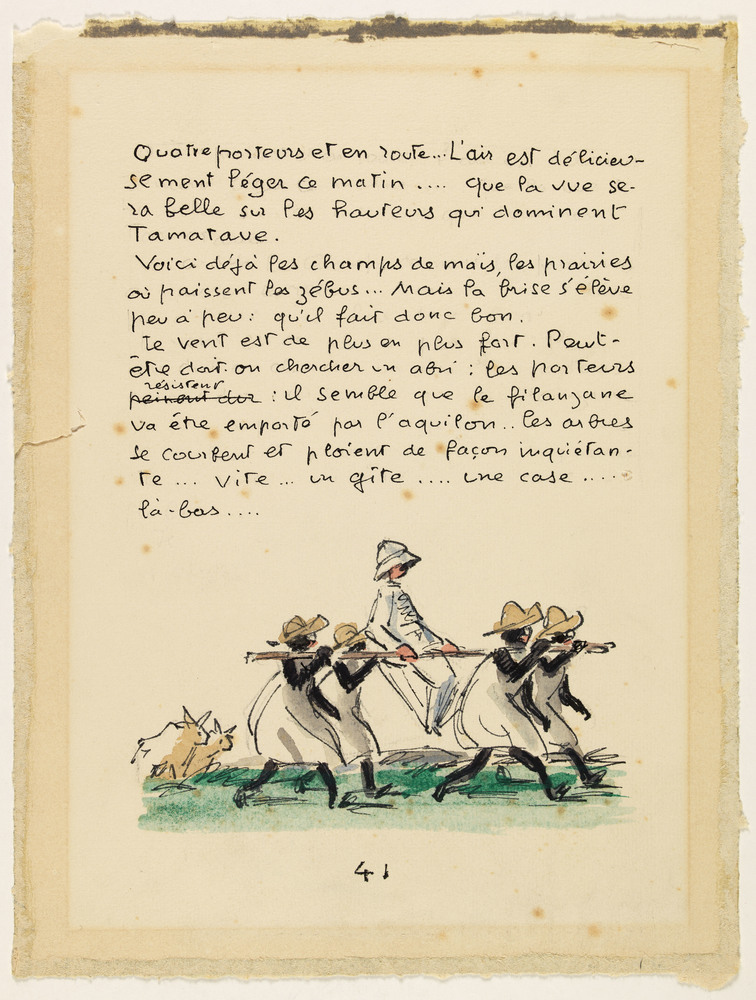 Quatre porteurs et en route... L'air est délicieu-
sement léger ce matin .... que la vue se-
ra belle sur les hauteurs qui dominent
Tamatave.
Voici déjà les champs de maïs, les prairies
où paissent les zébus... Mais la brise s'élève
peu à peu : qu'il fait donc bon.
Le vent est de plus en plus fort. Peut-
être doit-on chercher un abri : les porteurs
résistent
peinent dur : il semble que le filanzane
va être emporté par l'aquilon.. les arbres
se courbent et ploient de façon inquiétan-
te ... vite ... un gîte .... une case .....
là-bas ....
41